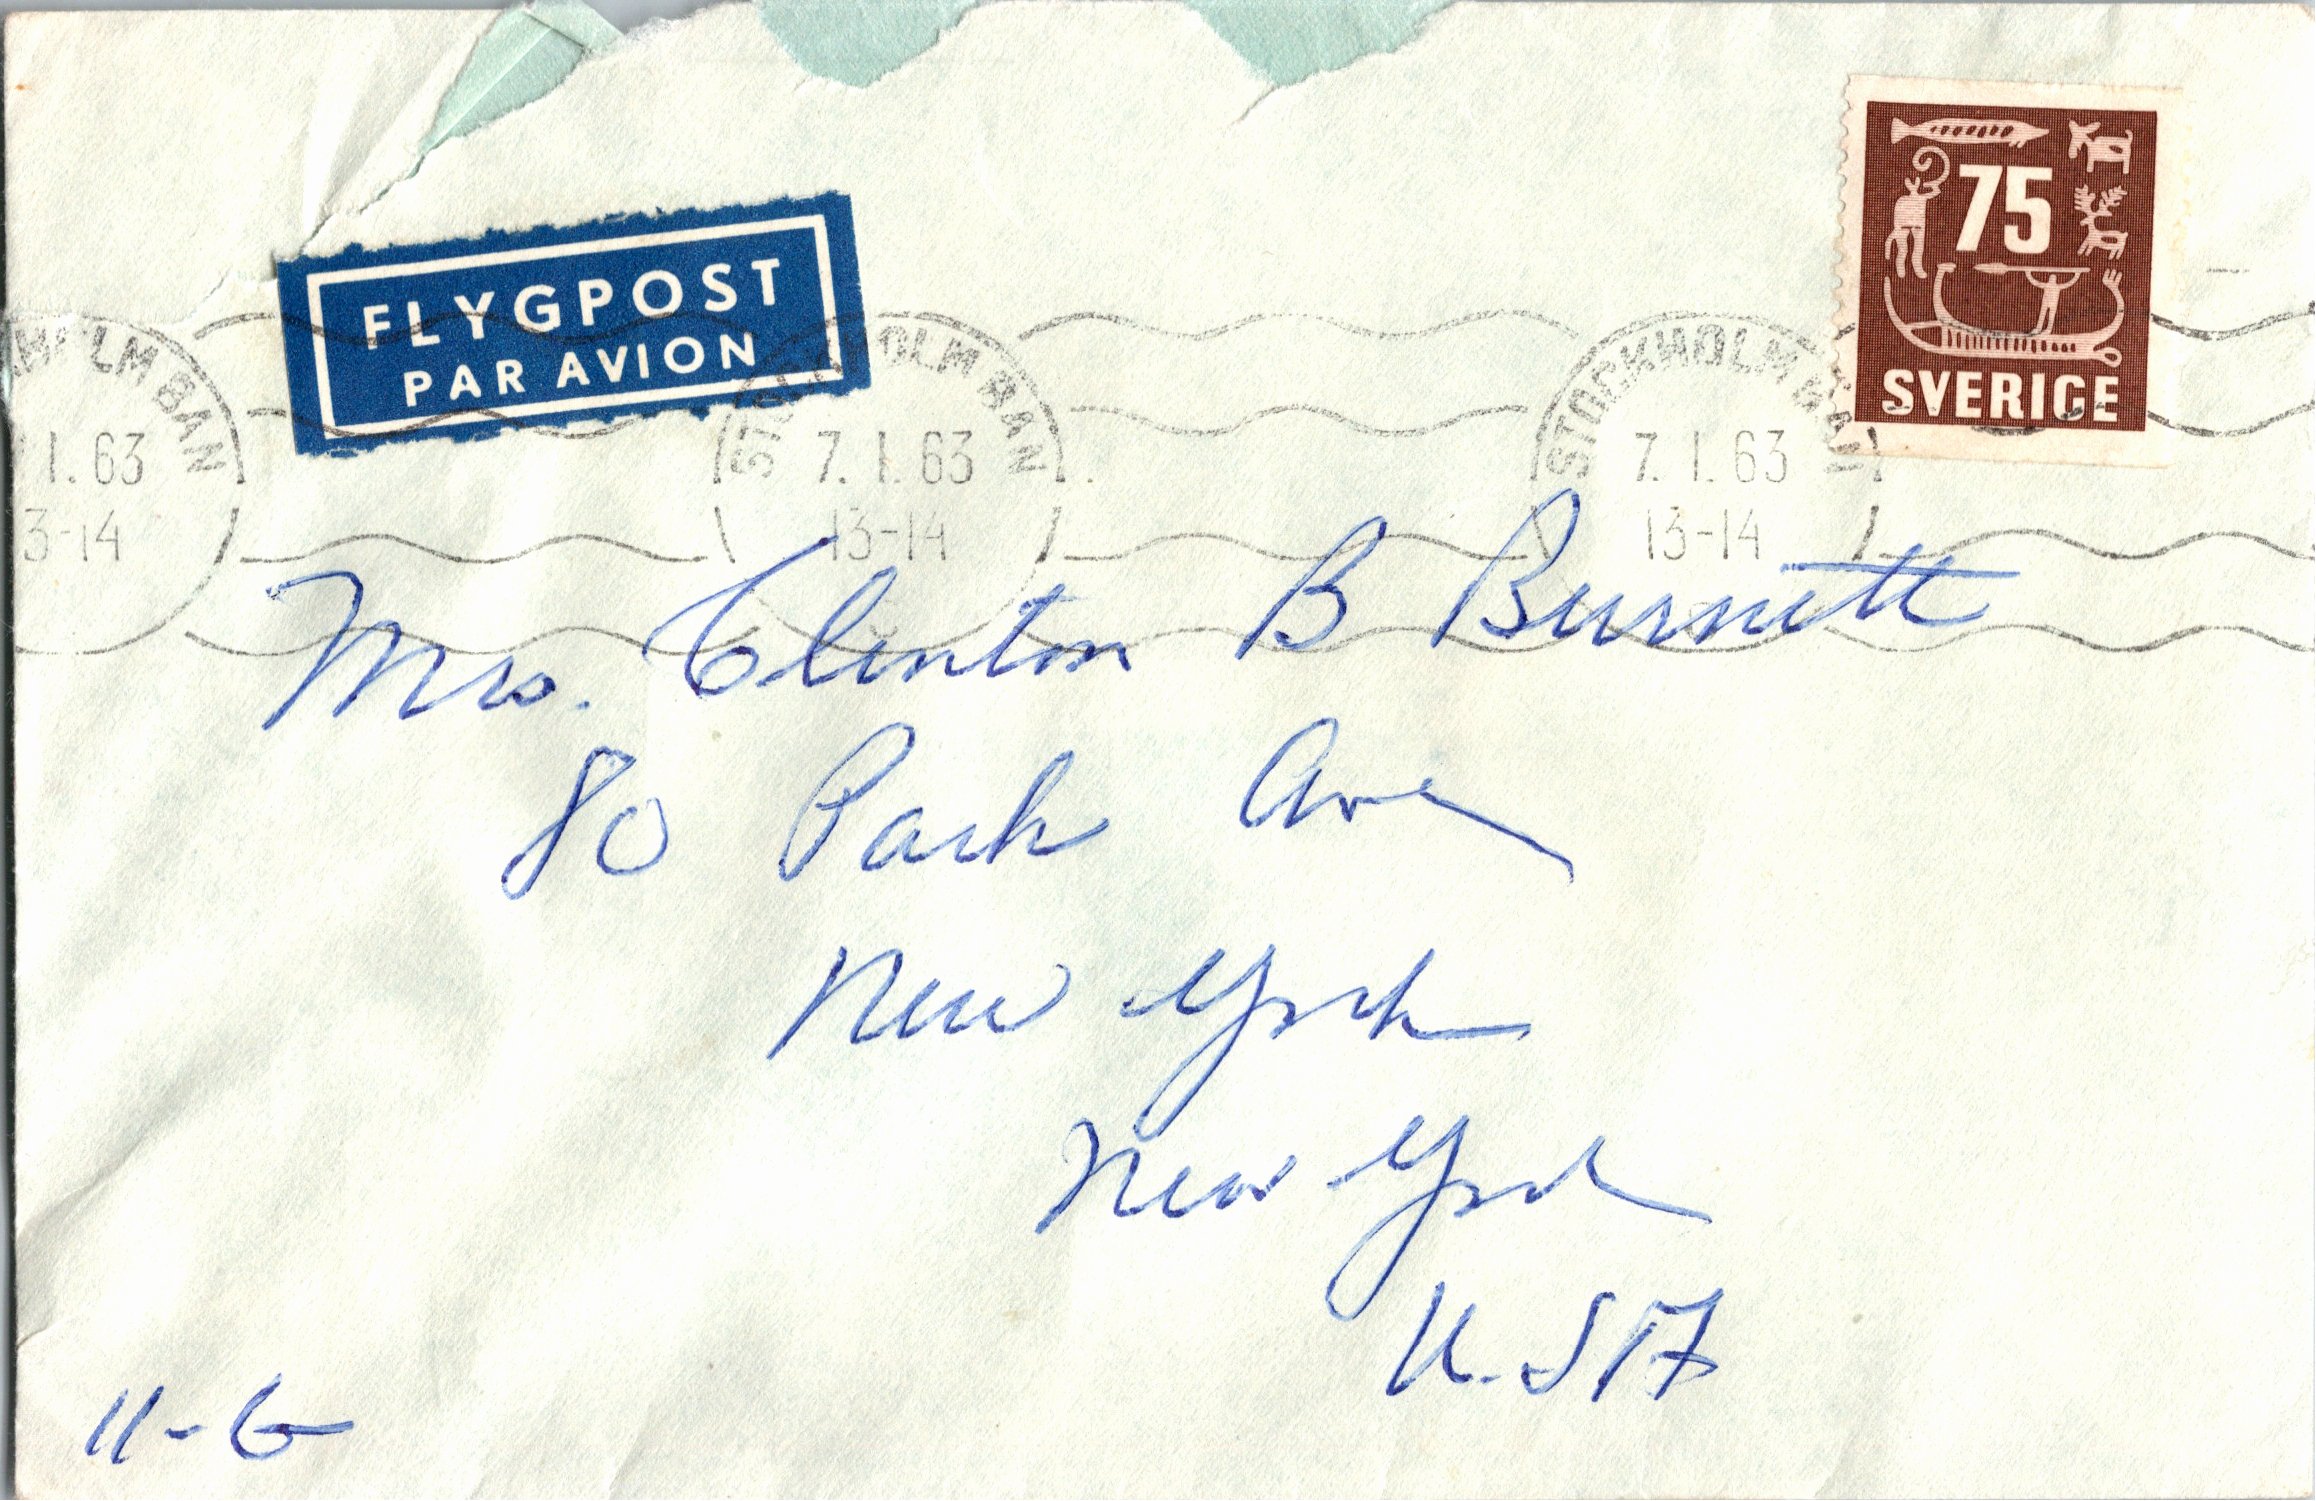 75
SVERIGE
FLYGPOST
PAR AVION
HOLM BAN
1.63
3-14
STOCKHOLM BAN
7.1.63
13-14
STOCKHOLM BAN
7.1.63
13-14
Mrs. Clinton B Burnett
80 Park Ave
New York
New York
U.SA
11-G